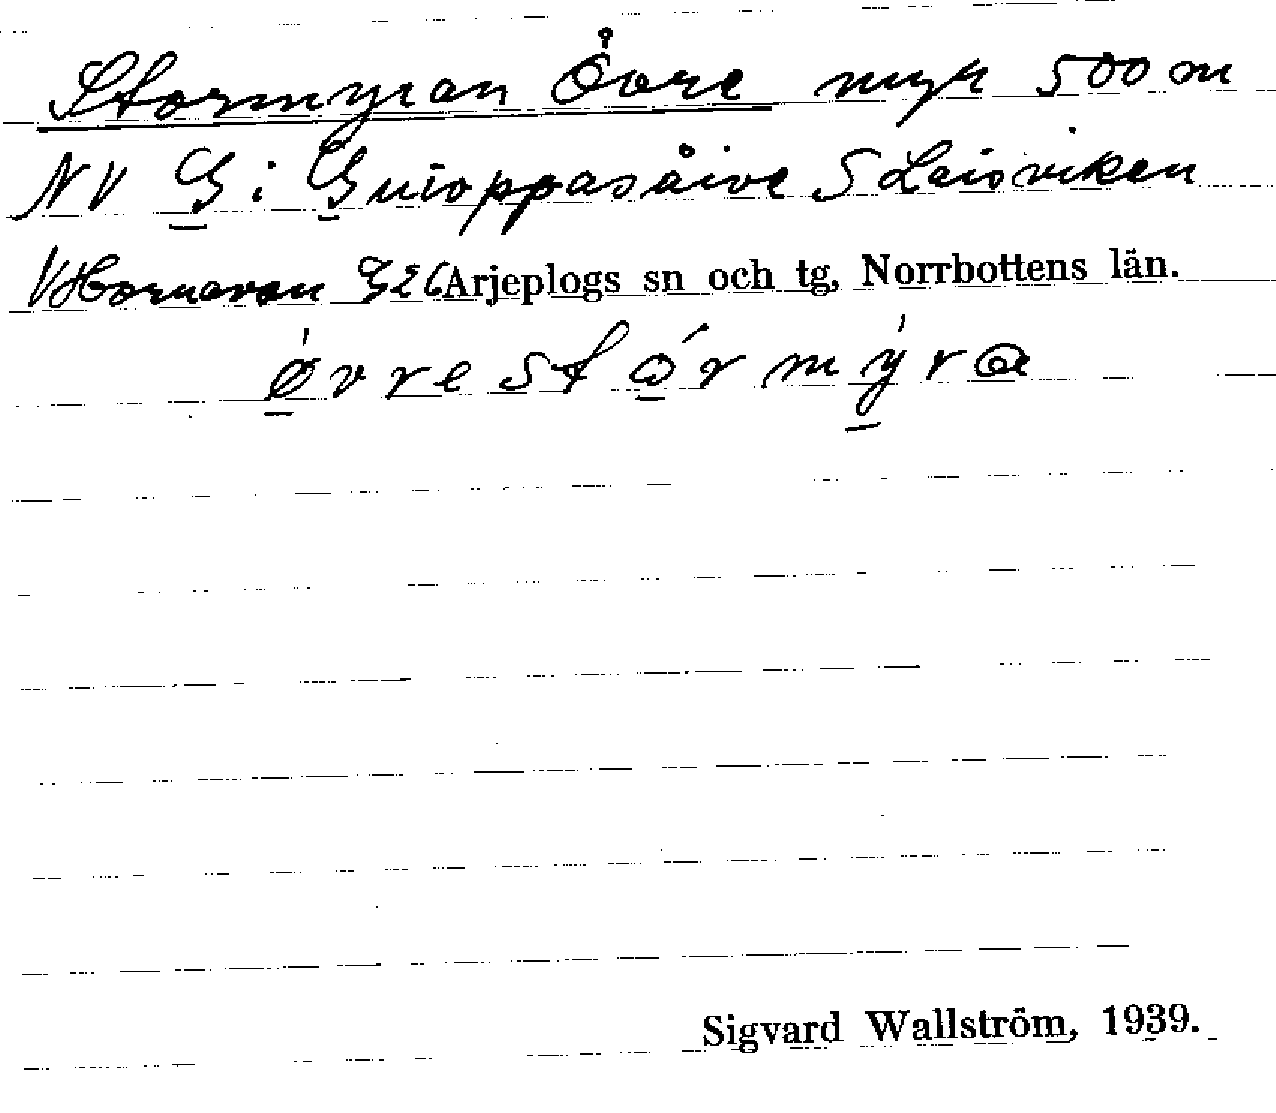 Stormyran Övre myr 500 m
NV G i Guioppasåive S Laisviken
V Hornavan G26 Arjeplogs sn och tg, Norrbottens län.
ø̀vrestǿrmỳra
Sigvard Wallström, 1939.